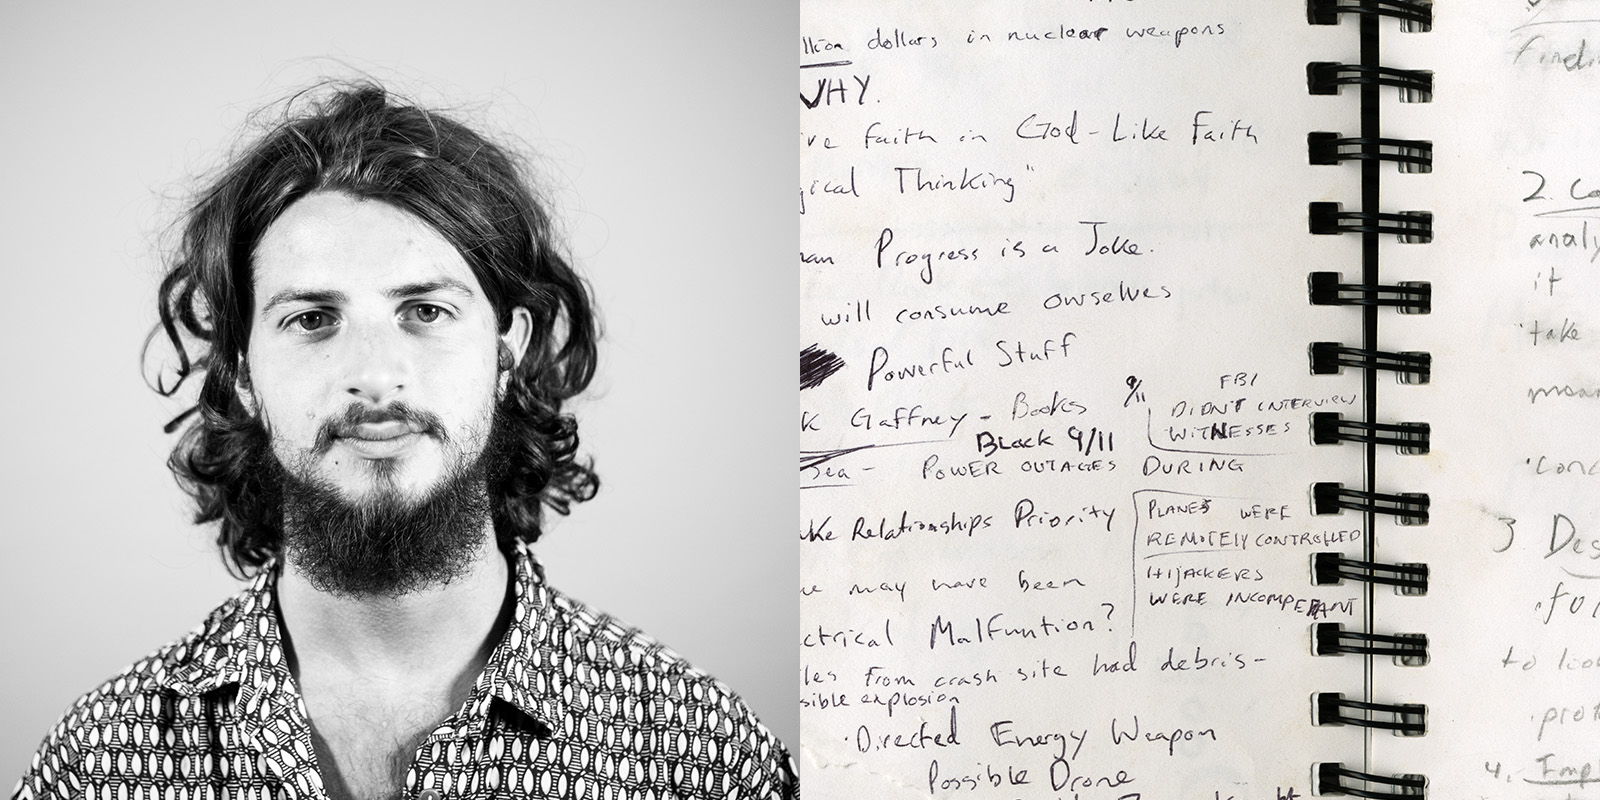 llion dollars in nuclear weapons
WHY.
ve faith in God-Like Faith
gical Thinking"
man Progress is a Joke.
will consume ourselves
Powerful Stuff
k Gaffney - Books 9/11
Black 9/11
FBI
DIDN'T INTERVIEW
WITNESSES
Sea - POWER OUTAGES DURING
ake Relationships Priority
PLANES WERE
REMOTELY CONTROLLED
HIJACKERS
WERE INCOMPETANT
may have been
ctrical Malfuntion?
les From crash site had debris-
sible explosion
·Directed Energy Weapon
Possible Drone
Findi
2. Co
analy
it
·take
mean
·conc
3. Des
·for
to look
·prot
4. Impl